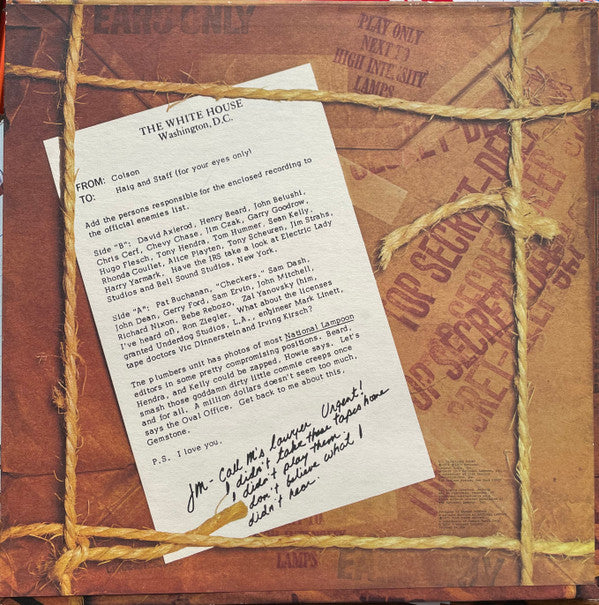 EARS ONLY
PLAY ONLY
NEXT TO
HIGH INTENSITY
LAMPS
THE WHITE HOUSE
Washington, D.C.
FROM: Colson
TO: Haig and Staff (for your eyes only)
Add the persons responsible for the enclosed recording to
the official enemies list.
Side "B": David Axlerod, Henry Beard, John Belushi,
Chris Cerf, Chevy Chase, Jim Czak, Garry Goodrow,
Hugo Flesch, Tony Hendra, Tom Hummer, Sean Kelly,
Rhonda Coullet, Alice Playten, Tony Scheuren, Jim Strahs,
Harry Yarmark. Have the IRS take a look at Electric Lady
Studios and Bell Sound Studios, New York.
Side "A": Pat Buchanan, "Checkers," Sam Dash,
John Dean, Gerry Ford, Sam Ervin, John Mitchell,
Richard Nixon, Bebe Rebozo, Zal Yanovsky (him,
I've heard of), Ron Ziegler. What about the licenses
granted Underdog Studios, L.A., engineer Mark Linett,
tape doctors Vic Dinnerstein and Irving Kirsch?
The plumbers unit has photos of most National Lampoon
editors in some pretty compromising positions. Beard,
Hendra, and Kelly could be zapped, Howie says. Let's
smash those goddamn dirty little commie creeps once
and for all. A million dollars doesn't seem too much,
says the Oval Office. Get back to me about this,
Gemstone.
P.S. I love you.
JM - Call M's lawyer. Urgent!
I didn't take those tapes home
I didn't play them
don't believe what I
didn't hear.
TOP SECRET-DE
TOP SECRET
LAMPS